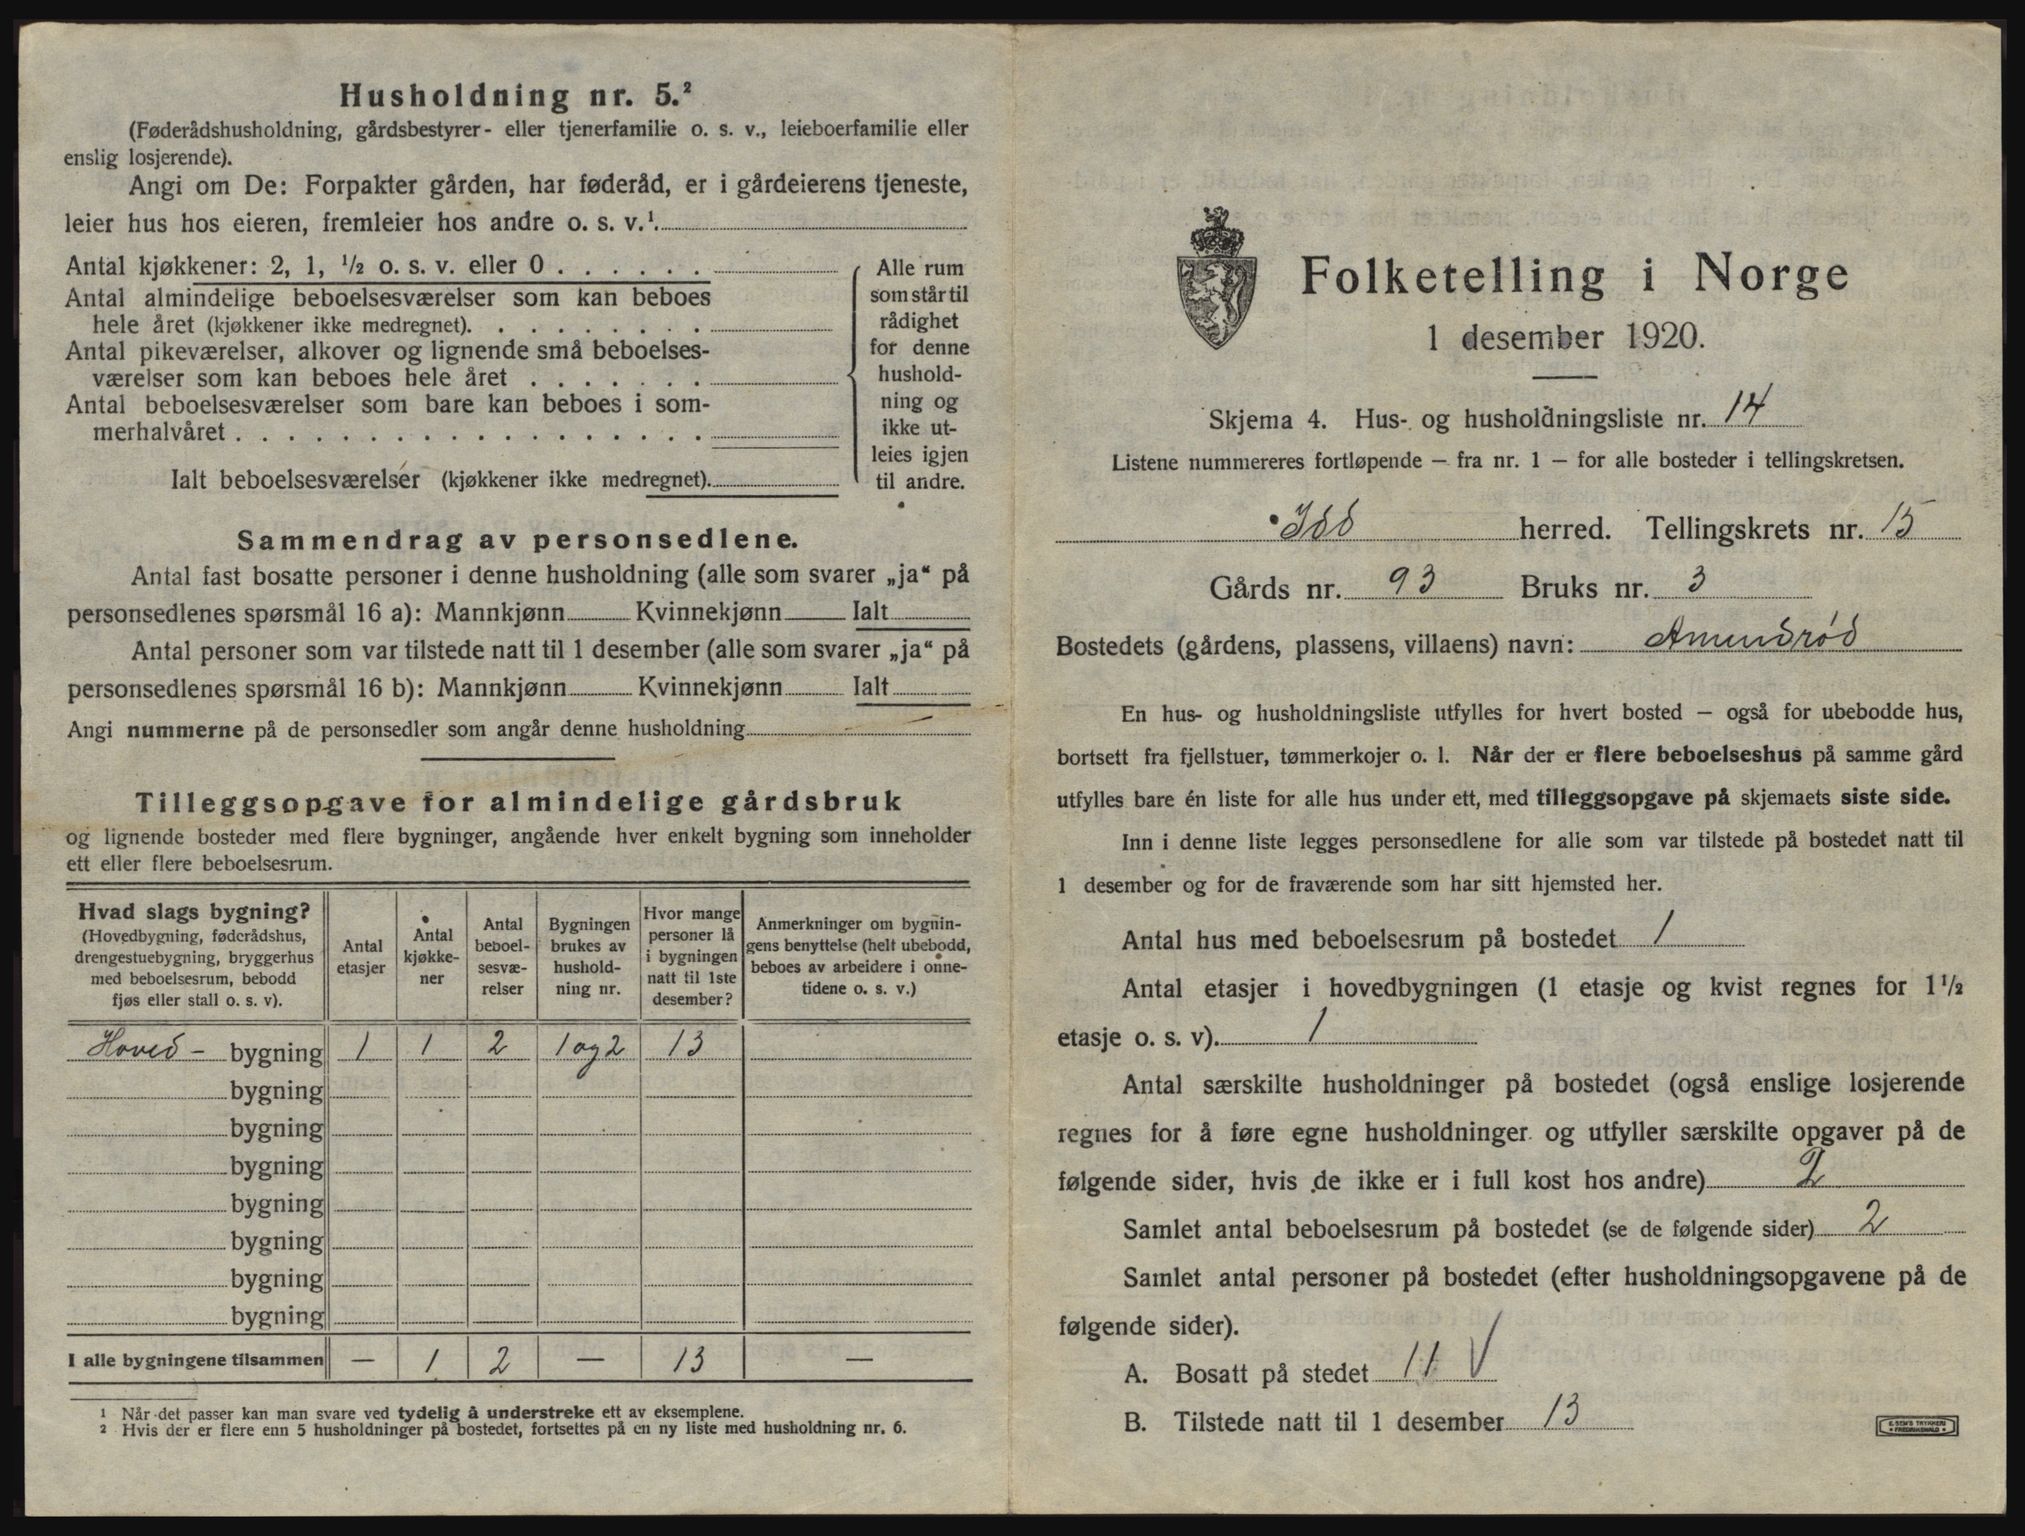 Husholdning nr. 5.²
(Føderådshusholdning, gårdsbestyrer- eller tjenerfamilie o. s. v., leieboerfamilie eller
enslig losjerende).
Angi om De: Forpakter gården, har føderåd, er i gårdeierens tjeneste,
leier hus hos eieren, fremleier hos andre o. s. v.¹.
Antal kjøkkener: 2, 1, ½ o. s. v. eller 0 . . . . . .
Antal almindelige beboelsesværelser som kan beboes
hele året (kjøkkener ikke medregnet). . . . . . . . .
Antal pikeværelser, alkover og lignende små beboelses-
værelser som kan beboes hele året . . . . . . .
Antal beboelsesværelser som bare kan beboes i som-
merhalvåret . . . . . . . . . . . . . . . . . .
Ialt beboelsesværelser (kjøkkener ikke medregnet).
Alle rum
som står til
rådighet
for denne
hushold-
ning og
ikke ut-
leies igjen
til andre.
Sammendrag av personsedlene.
Antal fast bosatte personer i denne husholdning (alle som svarer „ja“ på
personsedlenes spørsmål 16 a): Mannkjønn Kvinnekjønn Ialt
Antal personer som var tilstede natt til 1 desember (alle som svarer „ja“ på
personsedlenes spørsmål 16 b): Mannkjønn Kvinnekjønn Ialt
Angi nummerne på de personsedler som angår denne husholdning
Tilleggsopgave for almindelige gårdsbruk
og lignende bosteder med flere bygninger, angående hver enkelt bygning som inneholder
ett eller flere beboelsesrum.
Hvad slags bygning?
(Hovedbygning, føderådshus,
drengestuebygning, bryggerhus
med beboelsesrum, bebodd
fjøs eller stall o. s. v).
Antal
etasjer
Antal
kjøkke-
ner
Antal
beboel-
sesvæ-
relser
Bygningen
brukes av
hushold-
ning nr.
Hvor mange
personer lå
i bygningen
natt til 1ste
desember?
Anmerkninger om bygnin-
gens benyttelse (helt ubebodd,
beboes av arbeidere i onne-
tidene o. s. v.)
Hoved - bygning 1 1 2 1 og 2 13
bygning
bygning
bygning
bygning
bygning
bygning
bygning
I alle bygningene tilsammen — 1 2 — 13 —
¹ Når det passer kan man svare ved tydelig å understreke ett av eksemplene.
² Hvis der er flere enn 5 husholdninger på bostedet, fortsettes på en ny liste med husholdning nr. 6.
Folketelling i Norge
1 desember 1920.
Skjema 4. Hus- og husholdningsliste nr. 14
Listene nummereres fortløpende — fra nr. 1 — for alle bosteder i tellingskretsen.
Idd herred. Tellingskrets nr. 15
Gårds nr. 93 Bruks nr. 3
Bostedets (gårdens, plassens, villaens) navn: Amundrød
En hus- og husholdningsliste utfylles for hvert bosted — også for ubebodde hus,
bortsett fra fjellstuer, tømmerkojer o. l. Når der er flere beboelseshus på samme gård
utfylles bare én liste for alle hus under ett, med tilleggsopgave på skjemaets siste side.
Inn i denne liste legges personsedlene for alle som var tilstede på bostedet natt til
1 desember og for de fraværende som har sitt hjemsted her.
Antal hus med beboelsesrum på bostedet 1
Antal etasjer i hovedbygningen (1 etasje og kvist regnes for 1½
etasje o. s. v). 1
Antal særskilte husholdninger på bostedet (også enslige losjerende
regnes for å føre egne husholdninger og utfyller særskilte opgaver på de
følgende sider, hvis de ikke er i full kost hos andre) 2
Samlet antal beboelsesrum på bostedet (se de følgende sider) 2
Samlet antal personer på bostedet (efter husholdningsopgavene på de
følgende sider).
A. Bosatt på stedet 11 V
B. Tilstede natt til 1 desember 13
E. SEM'S TRYKKERI
• FREDRIKSHALD •